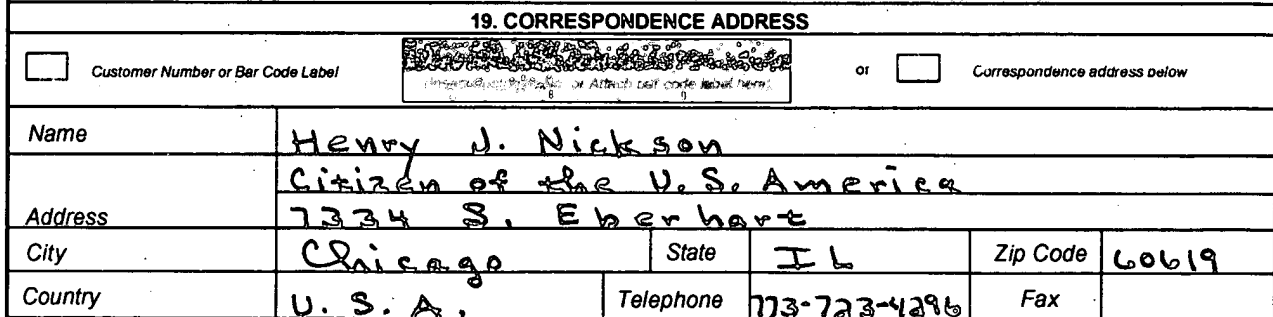 19. CORRESPONDENCE ADDRESS
Customer Number or Bar Code Label or Attach bar code label here or Correspondence address below
Name Henry J. Nickson
Citizen of the U.S. America
Address 7334 S. Eberhart
City Chicago State IL Zip Code 60619
Country U.S.A. Telephone 773-723-4296 Fax